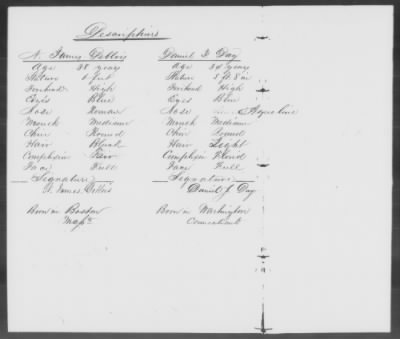 Descriptions
N. James Deblois Daniel F. Day
Age 38 years Age 34 years
Stature 6 feet Stature 5 ft 8 in
Forehead High Forehead High
Eyes Blue Eyes Blue
Nose Roman Nose Aqueline
Mouth Medium Mouth Medium
Chin Round Chin Round
Hair Black Hair Light
Complexion Fair Complexion Florid
Face Full Face Full
Signature Signature
N. James Deblois Daniel F. Day
Born in Boston Born in Washington
Mass Connecticut